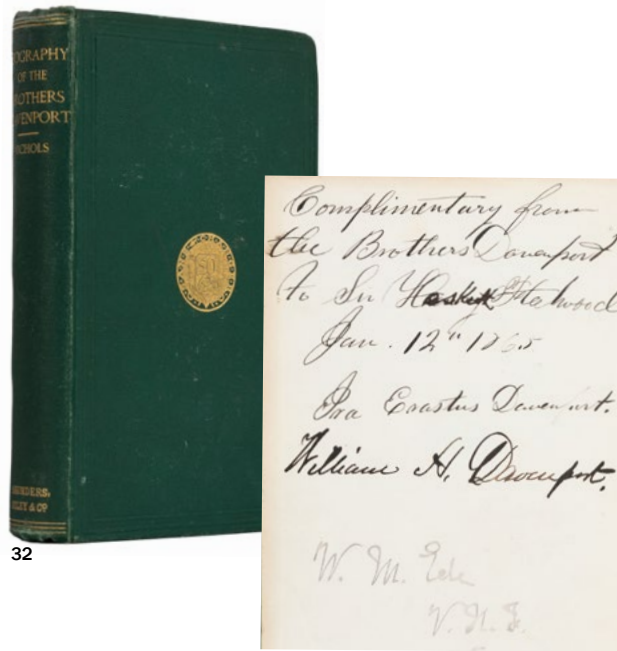 OGRAPHY
OF THE
ROTHERS
VENPORT
NICHOLS
UNDERS,
TLEY & Cº
32
Complimentary from
the Brothers Davenport
to Sir
Jan. 12" 1865
Ira Erastus Davenport.
William H. Davenport.
W. M. Ede